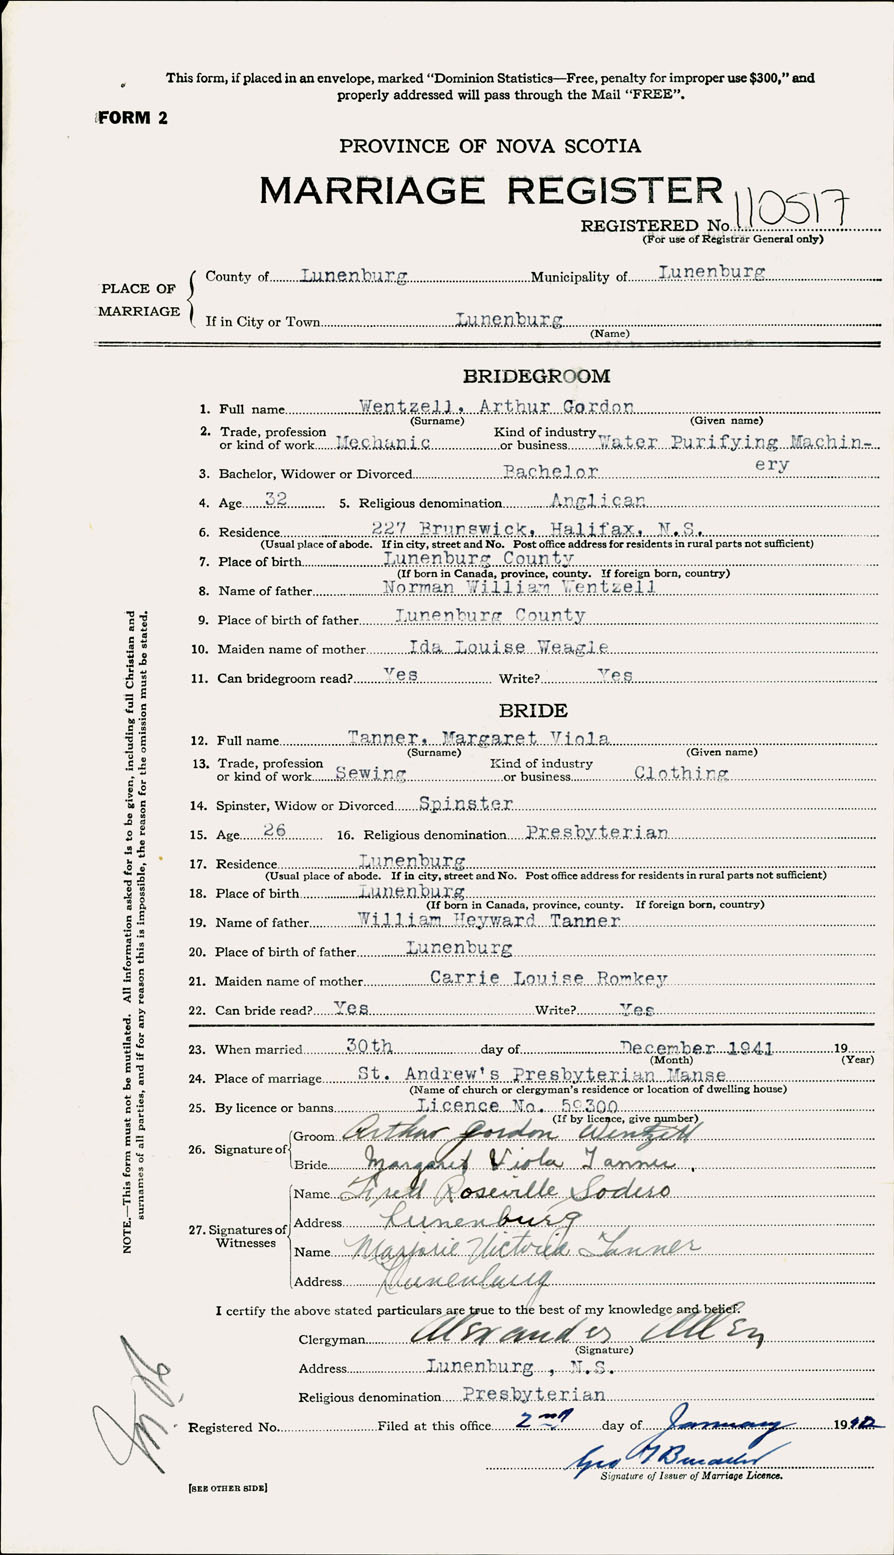 This form, if placed in an envelope, marked “Dominion Statistics—Free, penalty for improper use $300,” and
properly addressed will pass through the Mail “FREE”.
FORM 2
PROVINCE OF NOVA SCOTIA
MARRIAGE REGISTER
REGISTERED No. 110517
(For use of Registrar General only)
PLACE OF MARRIAGE
County of Lunenburg Municipality of Lunenburg
If in City or Town Lunenburg
(Name)
BRIDEGROOM
1. Full name Wentzell, Arthur Gordon
(Surname) (Given name)
2. Trade, profession or kind of work Mechanic Kind of industry or business Water Purifying Machin-
ery
3. Bachelor, Widower or Divorced Bachelor
4. Age 32 5. Religious denomination Anglican
6. Residence 227 Brunswick, Halifax, N.S.
(Usual place of abode. If in city, street and No. Post office address for residents in rural parts not sufficient)
7. Place of birth Lunenburg County
(If born in Canada, province, county. If foreign born, country)
8. Name of father Norman William Wentzell
9. Place of birth of father Lunenburg County
10. Maiden name of mother Ida Louise Weagle
11. Can bridegroom read? Yes Write? Yes
BRIDE
12. Full name Tanner, Margaret Viola
(Surname) (Given name)
13. Trade, profession or kind of work Sewing Kind of industry or business Clothing
14. Spinster, Widow or Divorced Spinster
15. Age 26 16. Religious denomination Presbyterian
17. Residence Lunenburg
(Usual place of abode. If in city, street and No. Post office address for residents in rural parts not sufficient)
18. Place of birth Lunenburg
(If born in Canada, province, county. If foreign born, country)
19. Name of father William Heyward Tanner
20. Place of birth of father Lunenburg
21. Maiden name of mother Carrie Louise Romkey
22. Can bride read? Yes Write? Yes
23. When married 30th day of December 1941 19
(Month) (Year)
24. Place of marriage St. Andrew's Presbyterian Manse
(Name of church or clergyman's residence or location of dwelling house)
25. By licence or banns Licence No. 59300
(If by licence, give number)
26. Signature of
Groom Arthur Gordon Wentzell
Bride Margaret Viola Tanner
27. Signatures of Witnesses
Name Fred Roseville Sodero
Address Lunenburg
Name Marjorie Victoria Tanner
Address Lunenburg
I certify the above stated particulars are true to the best of my knowledge and belief.
Clergyman Alexander Allen
(Signature)
Address Lunenburg , N.S.
Religious denomination Presbyterian
Registered No. Filed at this office 2nd day of January 1942
Geo
Signature of Issuer of Marriage Licence.
[SEE OTHER SIDE]
NOTE.—This form must not be mutilated. All information asked for is to be given, including full Christian and
surnames of all parties, and if for any reason this is impossible, the reason for the omission must be stated.